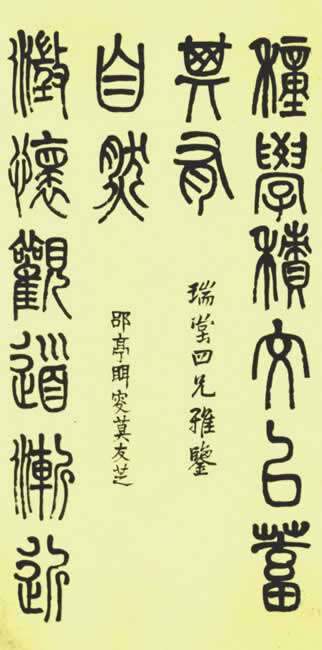 穜學積文以蓄
其有
瑞堂四兄雅鑒
澂懷觀道漸近
自然
郘亭眲叟莫友芝